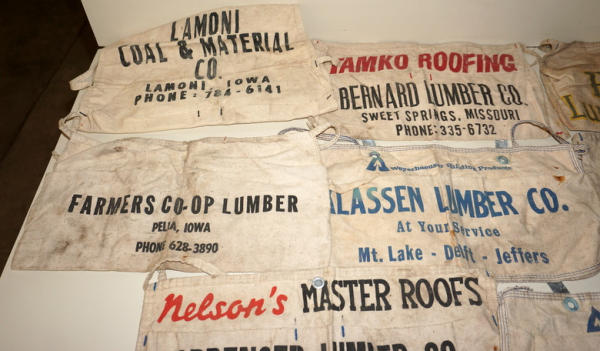 LAMONI
COAL & MATERIAL
CO.
LAMONI, IOWA
PHONE: 784-6141
TAMKO ROOFING
BERNARD LUMBER CO.
SWEET SPRINGS, MISSOURI
PHONE: 335-6732
FARMERS CO-OP LUMBER
PELLA, IOWA
PHONE 628-3890
Weyerhaeuser Building Products
LASSEN LUMBER CO.
At Your Service
Mt. Lake - Delft - Jeffers
Nelson's MASTER ROOFS
LUMBER CO